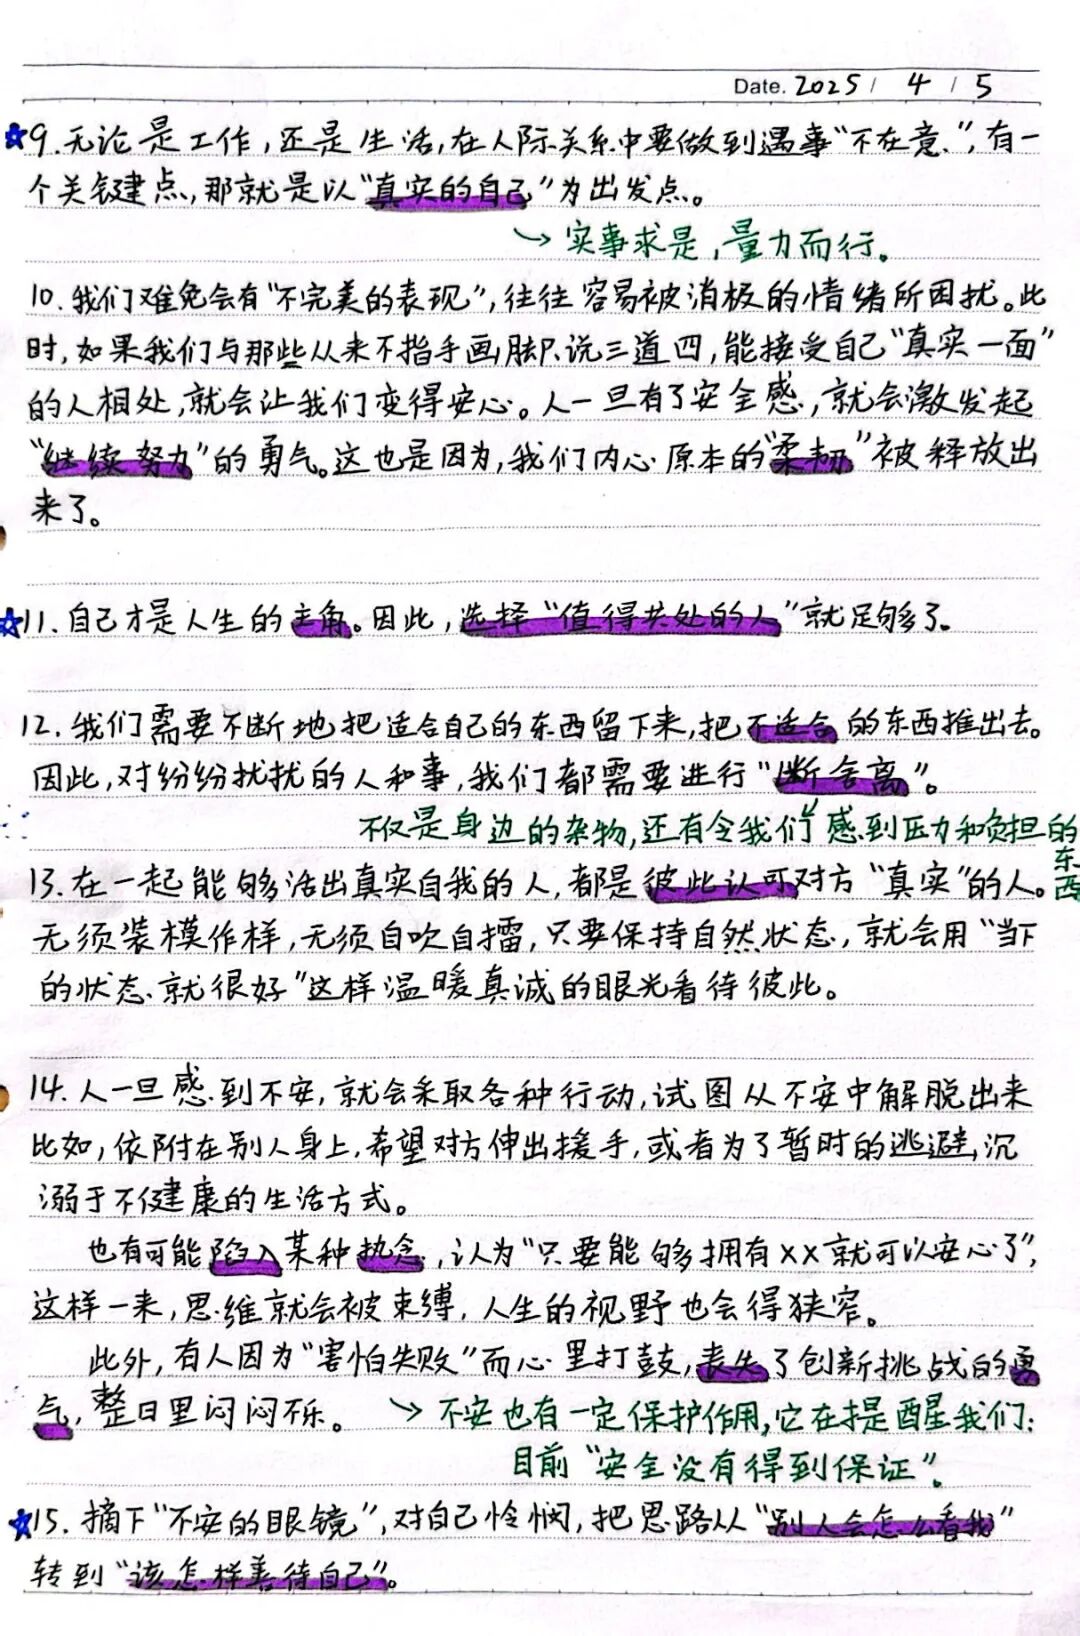 Date. 2025 / 4 / 5
☆9.无论是工作,还是生活,在人际关系中要做到遇事“不在意”,有一
个关键点,那就是以“真实的自己”为出发点。
→ 实事求是,量力而行。
10.我们难免会有“不完美的表现”,往往容易被消极的情绪所困扰。此
时,如果我们与那些从来不指手画脚、说三道四,能接受自己“真实一面”
的人相处,就会让我们变得安心。人一旦有了安全感,就会激发起
“继续努力”的勇气。这也是因为,我们内心原本的“柔韧”被释放出
来了。
☆11.自己才是人生的主角。因此,选择“值得共处的人”就足够了。
12.我们需要不断地把适合自己的东西留下来,把不适合的东西推出去。
因此,对纷纷扰扰的人和事,我们都需要进行“断舍离”。
不仅是身边的杂物,还有令我们感到压力和负担的
东西
13.在一起能够活出真实自我的人,都是彼此认可对方“真实”的人。
无须装模作样,无须自吹自擂,只要保持自然状态,就会用“当下
的状态就很好”这样温暖真诚的眼光看待彼此。
14.人一旦感到不安,就会采取各种行动,试图从不安中解脱出来
比如,依附在别人身上,希望对方伸出援手,或者为了暂时的逃避,沉
溺于不健康的生活方式。
也有可能陷入某种执念,认为“只要能够拥有××就可以安心了”,
这样一来,思维就会被束缚,人生的视野也会得狭窄。
此外,有人因为“害怕失败”而心里打鼓,丧失了创新挑战的勇
气,整日里闷闷不乐。 → 不安也有一定保护作用,它在提醒我们:
目前“安全没有得到保证”。
☆15.摘下“不安的眼镜”,对自己怜悯,把思路从“别人会怎么看我”
转到“该怎样善待自己”。